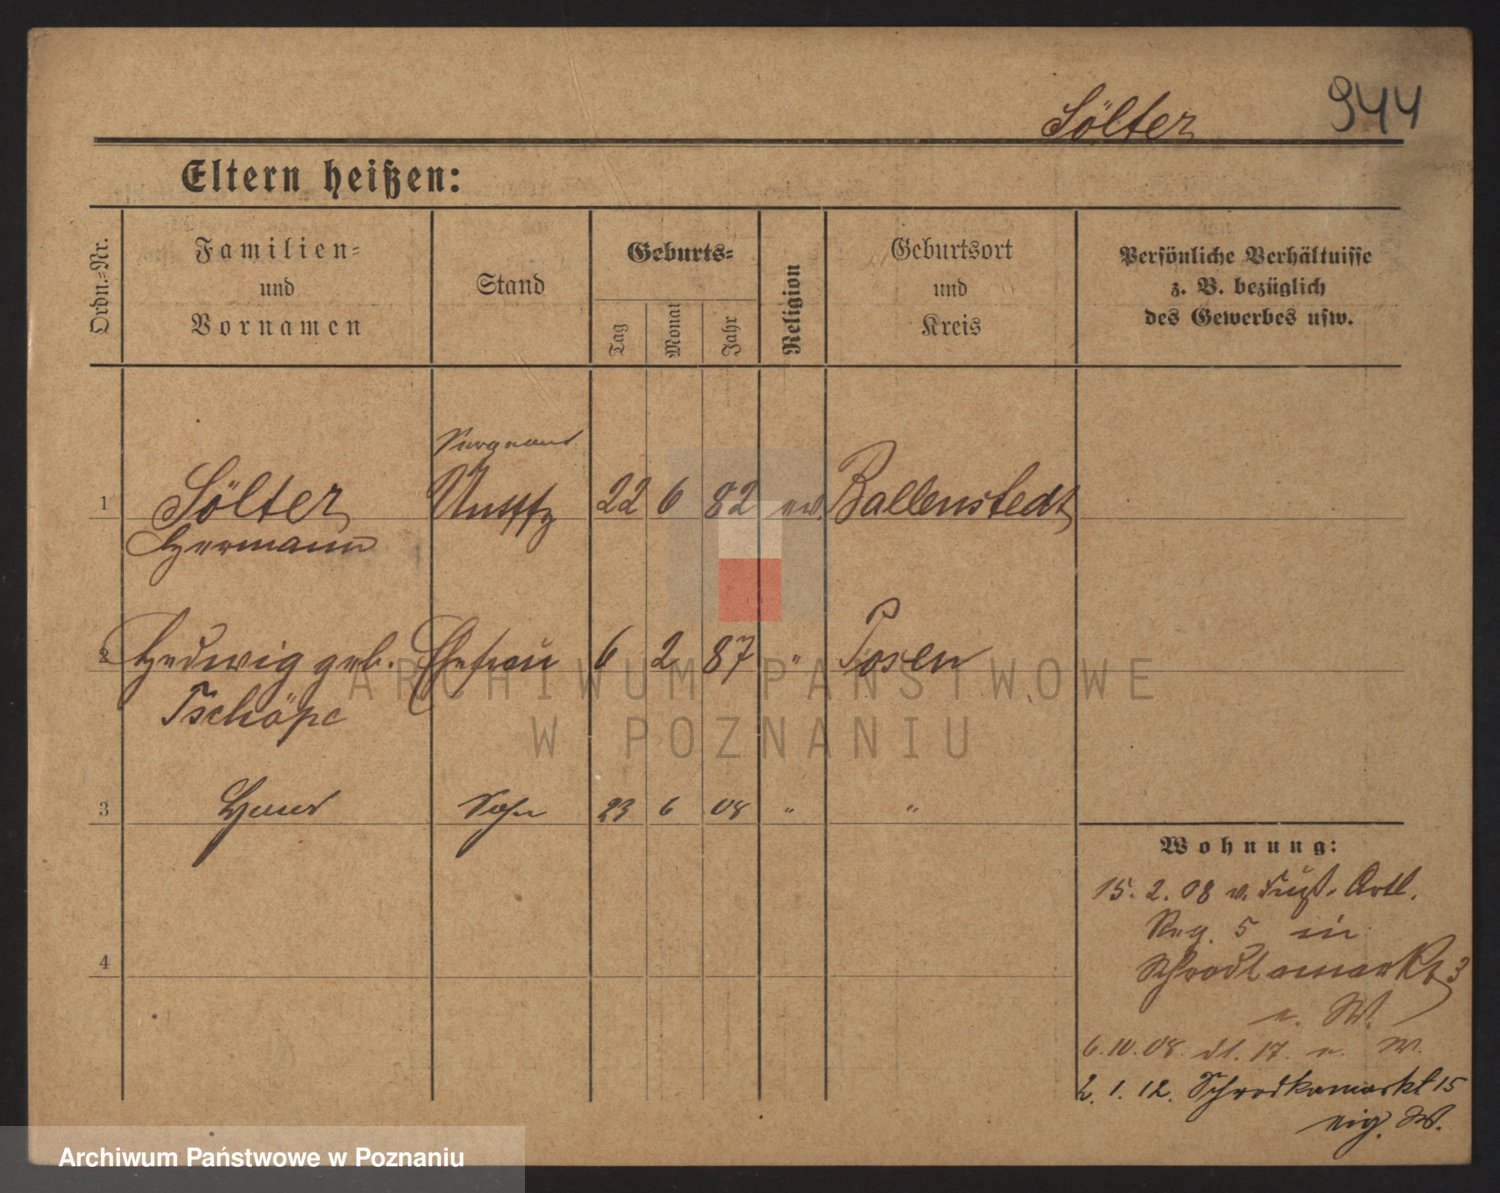 Sölter 944
Eltern heißen:
Ordn.-Nr.
Familien-
und
Vornamen
Stand
Geburts-
Tag
Monat
Jahr
Religion
Geburtsort
und
Kreis
Persönliche Verhältnisse
z. B. bezüglich
des Gewerbes usw.
Sergeant
1 Sölter Untffz 22 6 82 ev. Ballenstedt
Hermann
2 Hedwig geb. Ehefrau 6 2 87 " Posen
Tschöpe
3 Hans Sohn 23 6 08 " "
4
Wohnung:
15. 2. 08 v. Fuß-Artl.
Reg. 5 in
Schrodkamarkt 3
e. W.
6.10.08 dt. 17. e. W.
2. 1. 12. Schrodkamarkt 15
eig. W.
ARCHIWUM PAŃSTWOWE
W POZNANIU
Archiwum Państwowe w Poznaniu